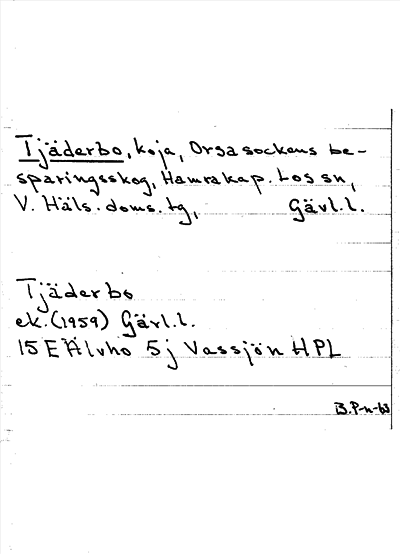 Tjäderbo, koja, Orsa sockens be-
sparingsskog, Hamra kap. Los sn,
V. Häls. doms. tg, Gävl.l.
Tjäderbo
ek. (1959) Gävl.l.
15 E Älvho 5j Vassjön HPL
B.P-n-63